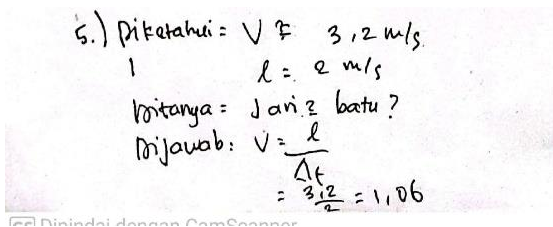 5.) Diketahui = V = 3,2 m/s.
l = 2 m/s
Ditanya = Jari2 batu?
Dijawab: V = l / Δt
= 3,2 / 2 = 1,06
CS Dipindai dengan CamScanner